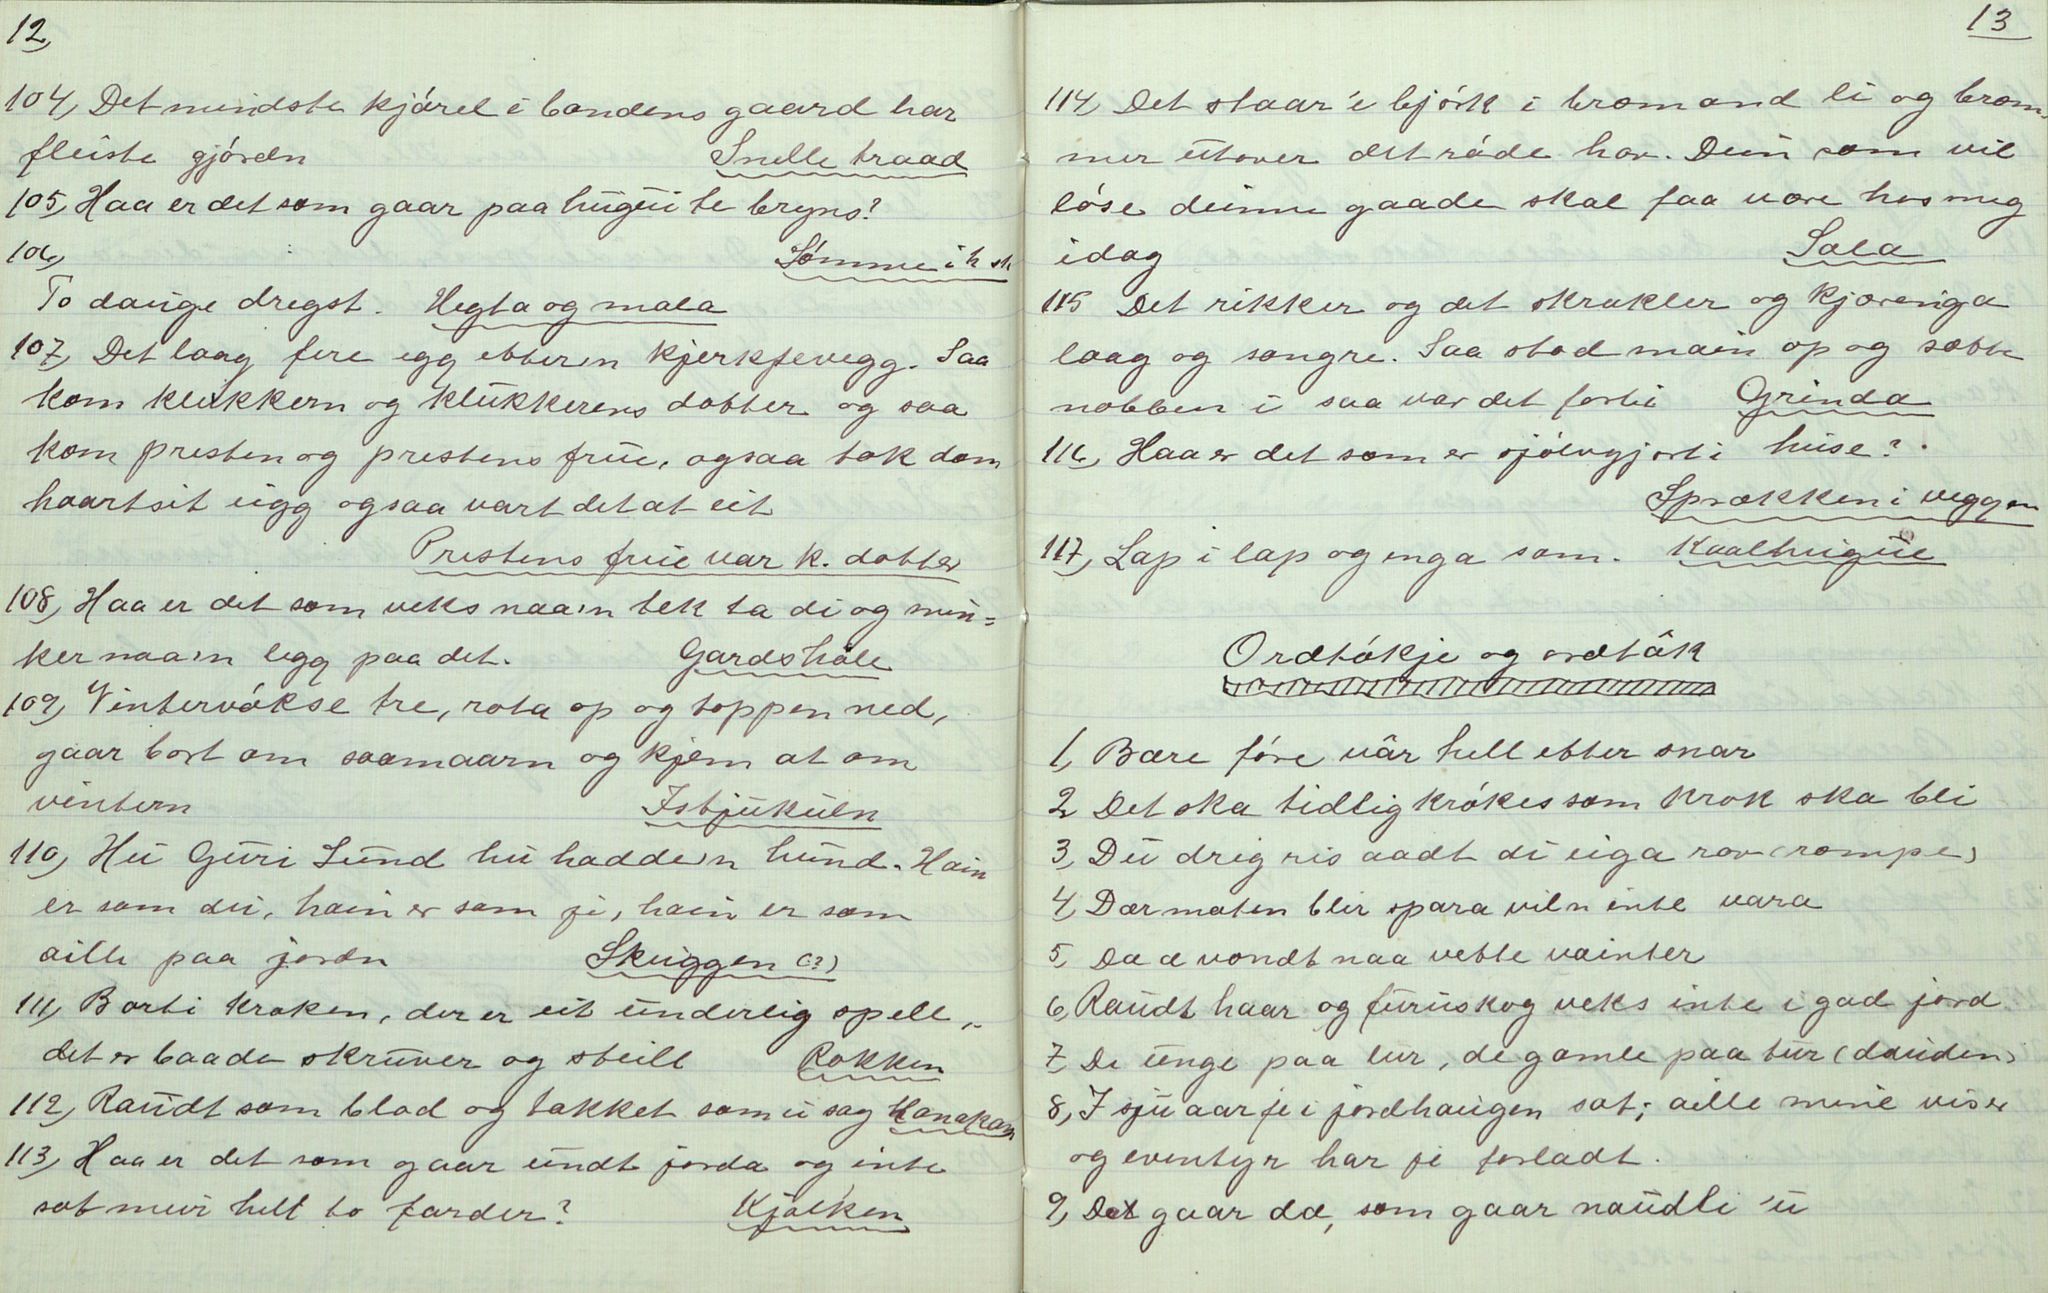 12,
104, Det mindste kjórel i bondens gaard har
fleiste gjórdn Snelle traad
105, Haa er det som gaar paa huguú te bryns?
106, Sómme i h sk
To dauge dregst. Hegta og mala
107, Det laag fire egg etter'n kjerkjevegg. Saa
kom klukkern og klukkerens dotter og saa
kom presten og prestens frue, ogsaa tok dom
haart sit eigg ogsaa vart det at eit
Prestens frue var k. dotter
108, Haa er det som veks naa'n tek ta di og min=
ker naa'n legg paa det. Gardshôle
109, Vintervókse tre, rota op og toppen ned,
gaar bort om soamaarn og kjem at om
vintern Istjukuln
110, Hu Guri Sund hu hadde'n hund. Hain
er som du, hain er som je, hain er som
aille paa jordn Skuggen (?)
111, Borti kroken, der er eit underlig spell,
det er baade skruver og steill Rokken
112, Raudt som blod og takket som ei sag Hanakam
113, Haa er det som gaar undt jorda og inte
sot meir hell to farder? Kjólken
13
114, Det staar 'ei bjórk i bromand li og brom-
mer utover det róde hav. Dein som vil
lóse deinne gaade skal faa være hos meg
idag Sola
115 Det rikker og det skrakler og kjæreinga
laag og sangre. Saa stod main op og sætte
nobben i saa var det forbi Grinda
116, Haa er det som er sjólvgjort i huse?
Sprækken i veggen
117, Lap i lap og enga som. Kaalhugue
Ordtókje og ordtâk
1, Bære fóre vâr hell etter snar
2 Det ska tidlig krókes som krok ska bli
3, Du dreg ris aadt di eiga rov (rompe)
4, Der maten blir spara viln inte vara
5, Da æ vondt naa vette vainter
6, Raudt haar og furuskog veks inte i god jord
7, De unge paa lur, de gamle paa tur (dauden)
8, I sju aar je i jordhaugen sat; aille mine viser
og eventyr har je forladt.
9, Det gaar da, som gaar naudli 'u